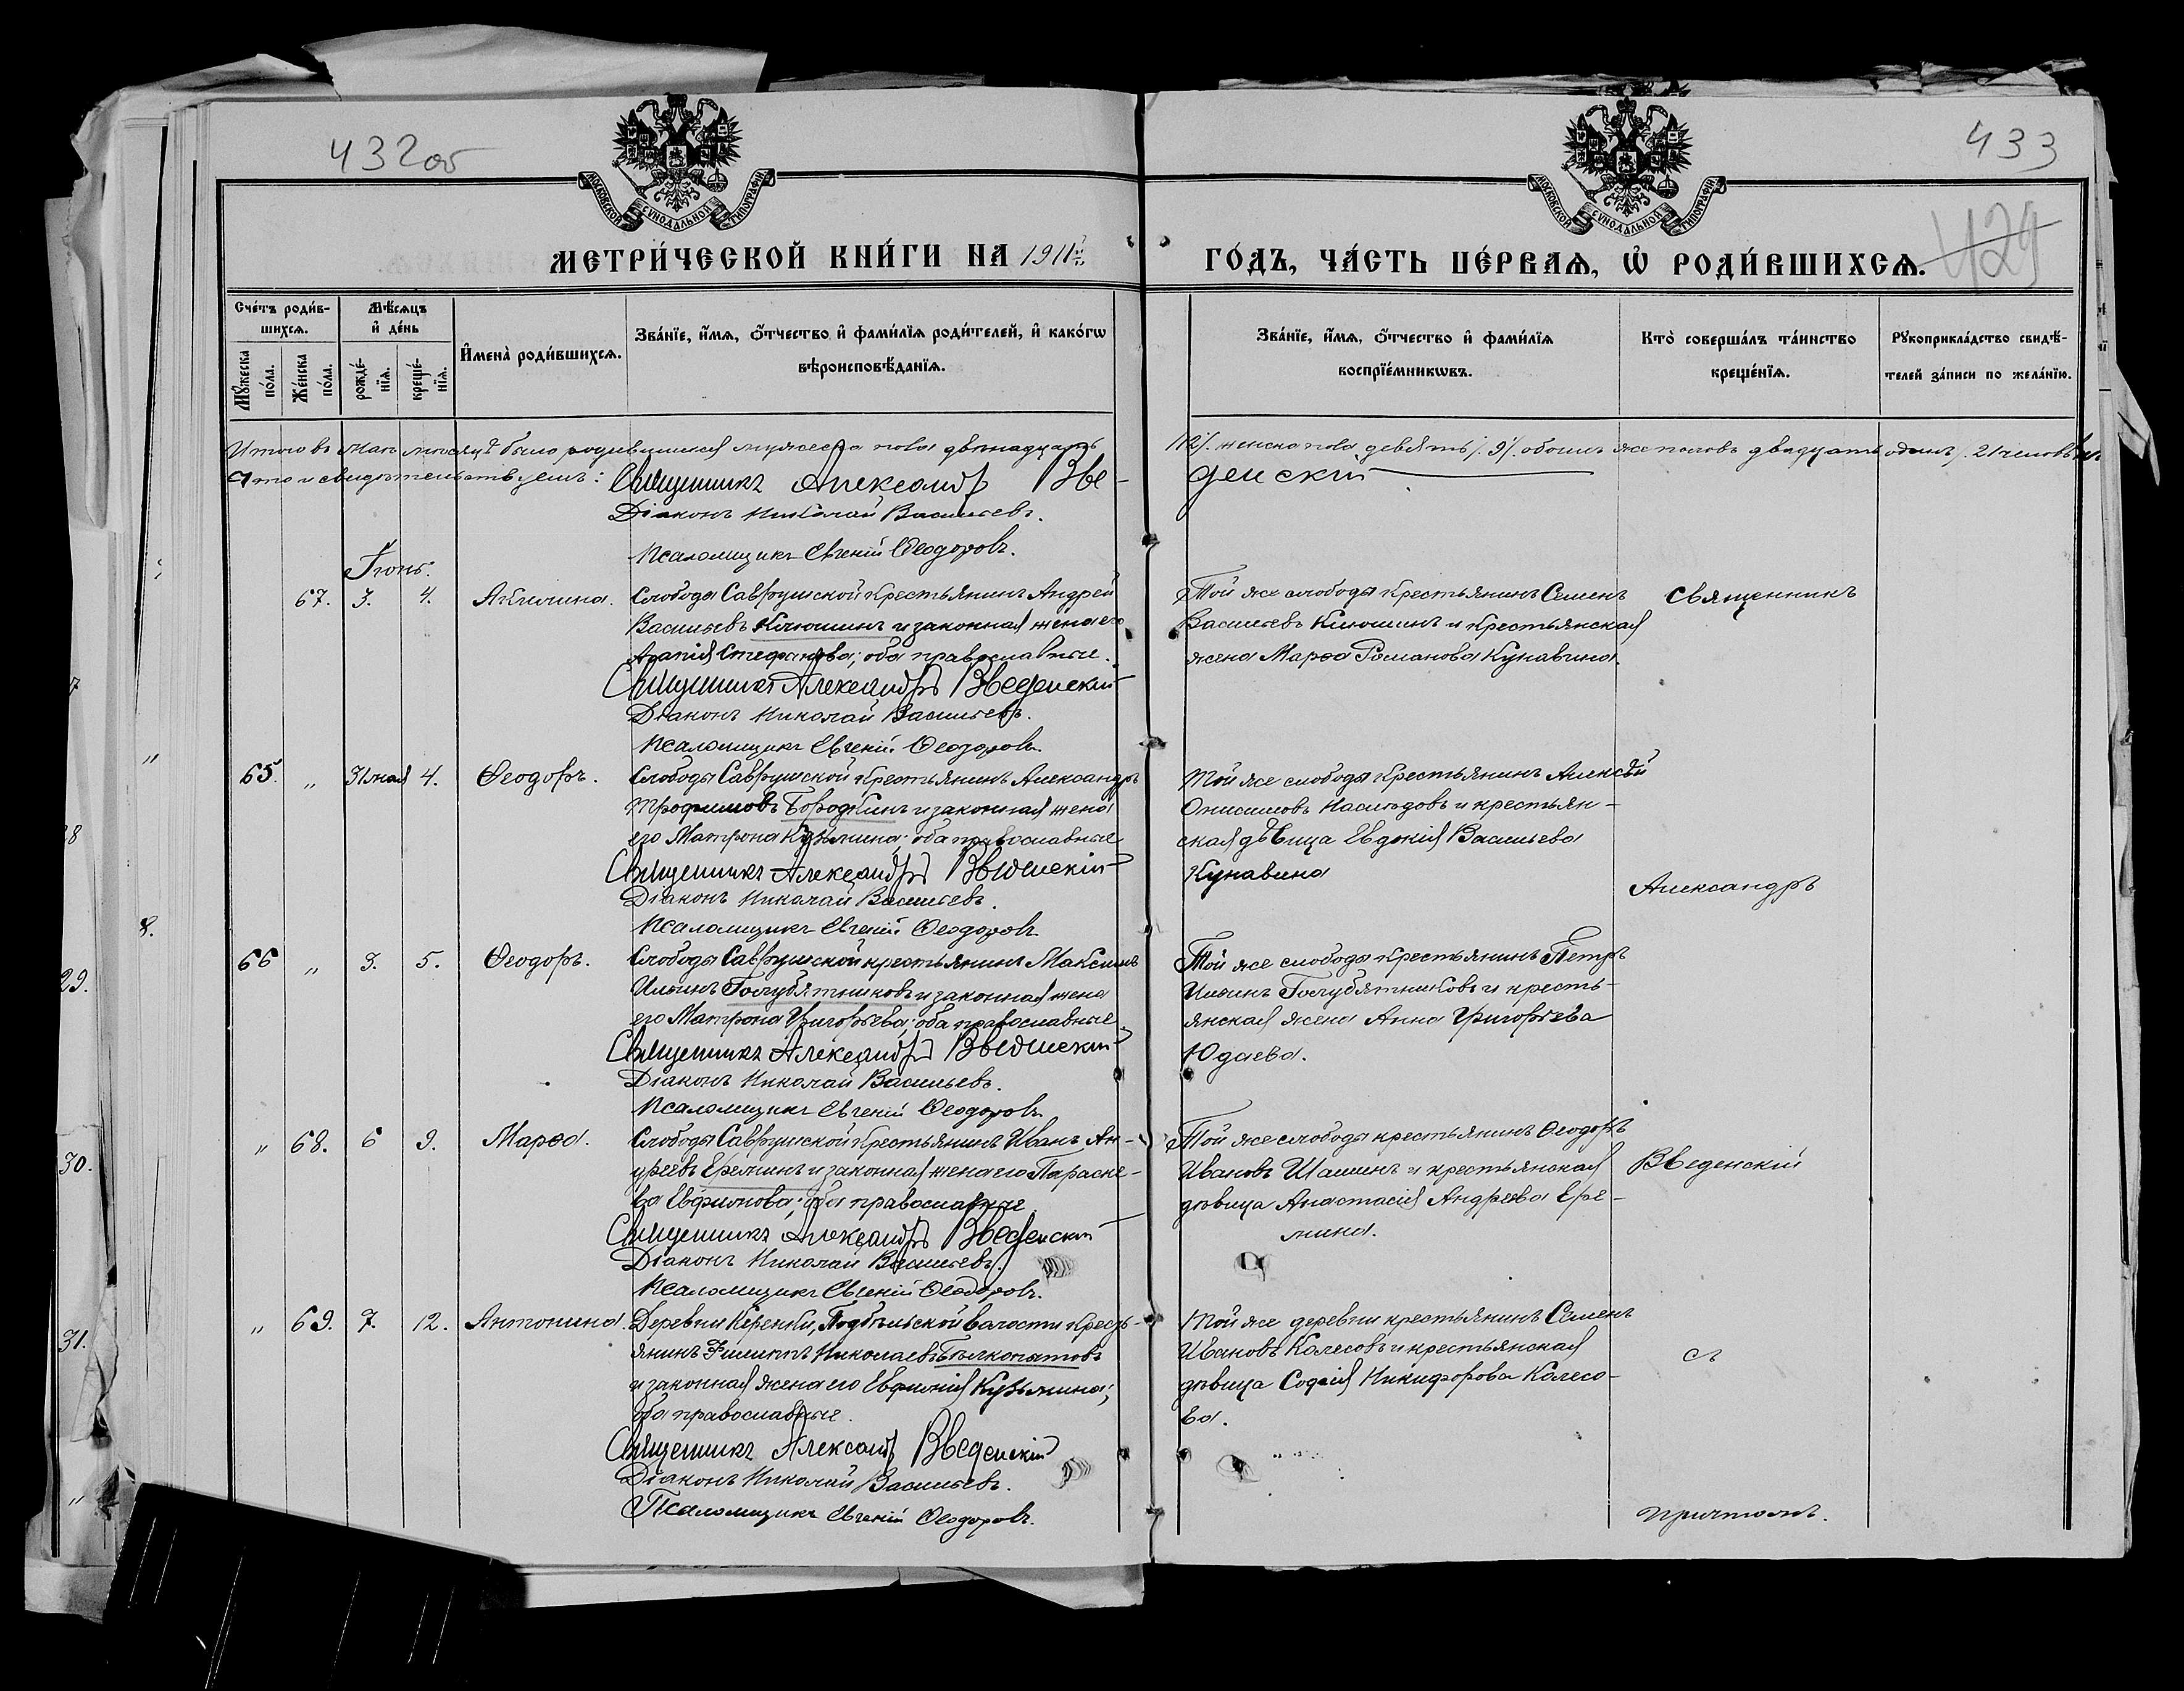 432об
433
429
МОСКОВСКОЙ СѴНОДАЛЬНОЙ ТИПОГРАФІИ
МОСКОВСКОЙ СѴНОДАЛЬНОЙ ТИПОГРАФІИ
МЕТРИ́ЧЕСКОЙ КНИ́ГИ НА 1911й
ГО́ДЪ, ЧА́СТЬ ПЕ́РВАѦ, Ѡ҆ РОДИ́ВШИХСѦ.
Сче́тъ роди́в-
шихсѧ.
Мꙋ́жеска
по́ла.
Же́нска
по́ла.
Мѣ́сѧцъ
и҆ де́нь
рожде́-
нїѧ.
креще́-
нїѧ.
И҆мена̀ роди́вшихсѧ.
Зва́нїе, и҆́мѧ, ѻ҆́тчество и҆ фами́лїѧ роди́телей, и҆ како́гѡ
вѣроисповѣ́данїѧ.
Зва́нїе, и҆́мѧ, ѻ҆́тчество и҆ фами́лїѧ
воспрїе́мникѡвъ.
Кто̀ соверша́лъ та́инство
креще́нїѧ.
Рꙋкоприкла́дство свидѣ́-
телей за́писи по жела́нїю.
Итого въ маѣ мѣсяцѣ было родившихся мужеска пола двѣнадцать /12/. женска пола девять /9/. обоихъ же половъ двадцать одинъ /21 человѣкъ
Что и свидѣтельствуемъ: Священникъ Александр Введенскій
Діаконъ Николай Васильевъ.
Псаломщикъ Евгеній Ѳеодоровъ.
Іюнь.
67. 3. 4. Акилина. Слободы Саврушской крестьянинъ Андрей
Васильевъ Клюшинъ и законная жена его
Агапія Стефанова; оба православные.
Священникъ Александръ Введенскій
Діаконъ Николай Васильевъ.
Псаломщикъ Евгеній Ѳеодоровъ.
Той же слободы крестьянинъ Семенъ
Васильевъ Клюшинъ и крестьянская
жена Марѳа Романова Кунавина.
Священникъ
65. " 31 мая 4. Ѳеодоръ. Слободы Саврушской крестьянинъ Александръ
Трофимовъ Бородкинъ и законная жена
его Матрона Кузьмина; оба православные
Священникъ Александръ Введенскій
Діаконъ Николай Васильевъ.
Псаломщикъ Евгеній Ѳеодоровъ
Той же слободы крестьянинъ Алексѣй
Онисимовъ Насыпдовъ и крестьян-
ская дѣвица Евдокія Васильева
Кунавина
Александръ
66 " 3. 5. Ѳеодоръ. Слободы Саврушской крестьянинъ Максимъ
Ильинъ Голубятниковъ и законная жена
его Матрона Григорьева; оба православные.
Священникъ Александръ Введенскій
Діаконъ Николай Васильевъ.
Псаломщикъ Евгеній Ѳеодоровъ
Той же слободы крестьянинъ Петръ
Ильинъ Голубятниковъ и кресть-
янская жена Анна Григорьева
Юдаева.
" 68. 6 9. Марѳа. Слободы Саврушской крестьянинъ Иванъ Ан-
дреевъ Ереминъ и законная жена его Параске-
ва Евфимова; оба православные
Священникъ Александръ Введенскій
Діаконъ Николай Васильевъ.
Псаломщикъ Евгеній Ѳеодоровъ.
Той же слободы крестьянинъ Ѳеодоръ
Ивановъ Шашинъ и крестьянская
дѣвица Анастасія Андреева Ере-
мина.
Введенскій
" 69. 7. 12. Антонина. Деревни Керенки, Подбѣльской волости кресть-
янинъ Филиппъ Николаевъ Бѣлкопытовъ
и законная жена его Евфимія Кузьмина;
оба православные.
Священникъ Александр Введенскій
Діаконъ Николай Васильевъ.
Псаломщикъ Евгеній Ѳеодоровъ.
Той же деревни крестьянинъ Семенъ
Ивановъ Колесовъ и крестьянская
дѣвица Софія Никифорова Колесо-
ва.
съ
причтомъ.
28
29.
30.
31.
8.